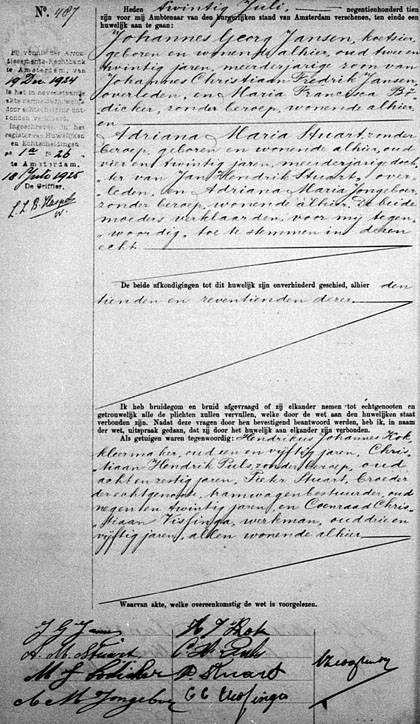 N°. 487
Heden twintig Juli negentienhonderd tien
zijn voor mij Ambtenaar van den burgerlijken stand van Amsterdam verschenen, ten einde een
huwelijk aan te gaan:
Johannes Georg Jansen, koetsier,
geboren en wonende alhier, oud twee en
twintig jaren, meerderjarige zoon van
Johannes Christiaan Fredrik Jansen,
overleden, en Maria Francisca Bö-
dicker, zonder beroep, wonende alhier
en
Adriana Maria Stuart, zonder
beroep, geboren en wonende alhier, oud
vier en twintig jaren, meerderjarige doch-
ter van Jan Hendrik Stuart, over-
leden, en Adriana Maria Jongeboer
zonder beroep, wonende alhier. De beide
moeders verklaarden, voor mij tegen-
woordig, toe te stemmen in dezen
echt.
De beide afkondigingen tot dit huwelijk zijn onverhinderd geschied, alhier den
tienden en zeventienden dezer
Ik heb bruidegom en bruid afgevraagd of zij elkander nemen tot echtgenooten en
getrouwelijk alle de plichten zullen vervullen, welke door de wet aan den huwelijken staat
verbonden zijn. Nadat deze vragen door hen bevestigend beantwoord werden, heb ik, in naam
der wet, uitspraak gedaan, dat zij door het huwelijk aan elkander zijn verbonden.
Als getuigen waren tegenwoordig: Hendrikus Johannes Kok,
kleermaker, oud een en vijftig jaren, Chris-
tiaan Hendrik Puls, zonder beroep, oud
acht en zestig jaren, Pieter Stuart, broeder
der echtgenoote, tramwagenbestuurder, oud
negen en twintig jaren, en Coenraad Chris-
tiaan Vissinga, werkman, oud drie en
vijftig jaren, allen wonende alhier
Waarvan akte, welke overeenkomstig de wet is voorgelezen.
J G Jansen
H J Kok
A. M. Stuart
C H Puls
M F Bödicker
P Stuart
A M Jongeboer
C C Vissinga
Bij vonnis der Arron-
dissements-Rechtbank
te Amsterdam, van
4 Dec. 1924
is het in nevenstaande
akte vermelde huwelijk
door echtscheiding ont-
bonden verklaard.
Ingeschreven in het
register van Huwelijken
en Echtscheidingen
te Amsterdam,
De Griffier,